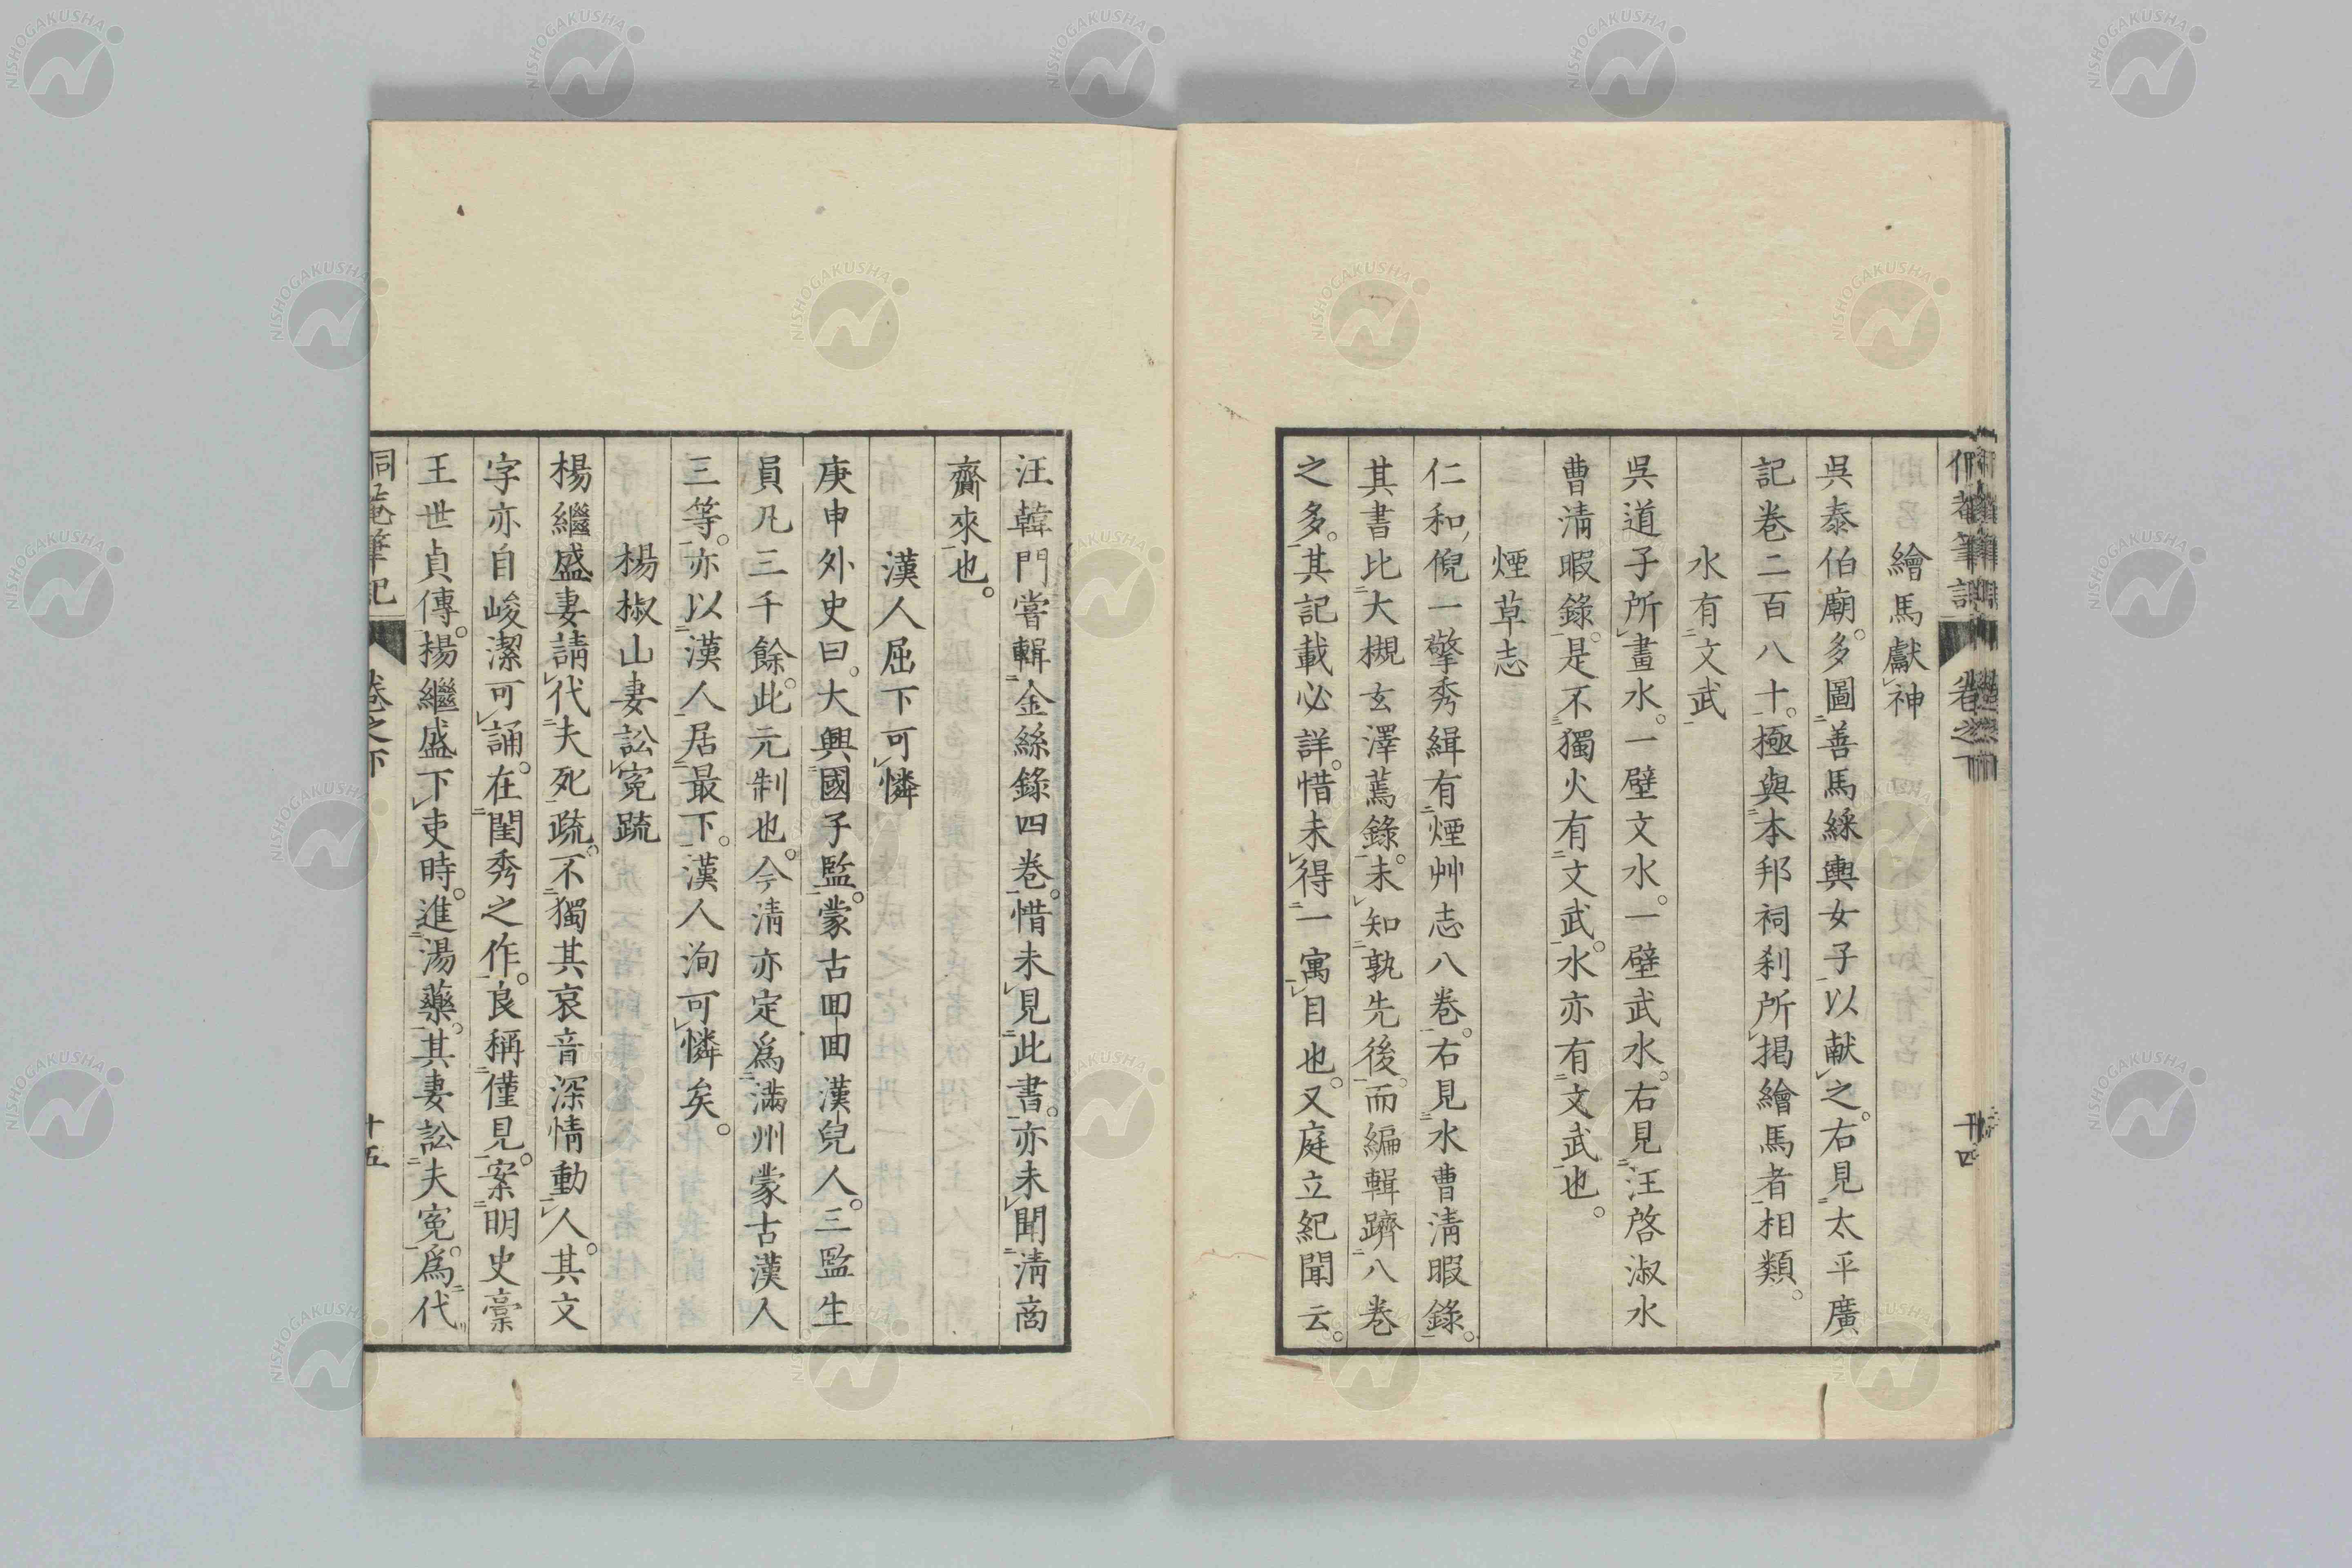 繪馬獻神
吳泰伯廟。多圖善馬綵輿女子以献之。右見太平廣
記卷二百八十。極與本邦祠刹所掲繪馬者相類。
水有文武
吳道子所畫水。一壁文水。一壁武水。右見汪啓淑水
曹淸暇錄。是不獨火有文武。水亦有文武也。
煙草志
仁和倪一擎秀緝有煙艸志八卷。右見水曹淸暇錄。
其書比大槻玄澤蔫錄。未知孰先後。而編輯躋八卷
之多。其記載必詳。惜未得一寓目也。又庭立紀聞云。
汪韓門嘗輯金絲錄四卷。惜未見此書。亦未聞淸啇
齎來也。
漢人屈下可憐
庚申外史曰。大興國子監。蒙古囬囬漢兒人。三監生
員凡三千餘。此元制也。今淸亦定爲滿州蒙古漢人
三等。亦以漢人居最下。漢人洵可憐矣。
楊椒山妻訟寃疏
楊繼盛妻請代夫死疏。不獨其哀音深情動人。其文
字亦自峻潔可誦。在閨秀之作。良稱僅見。案明史稾
王世貞傳。楊繼盛下吏時。進湯藥。其妻訟夫寃。爲代
侗菴筆記 卷之下 十五
NISHOGAKUSHA